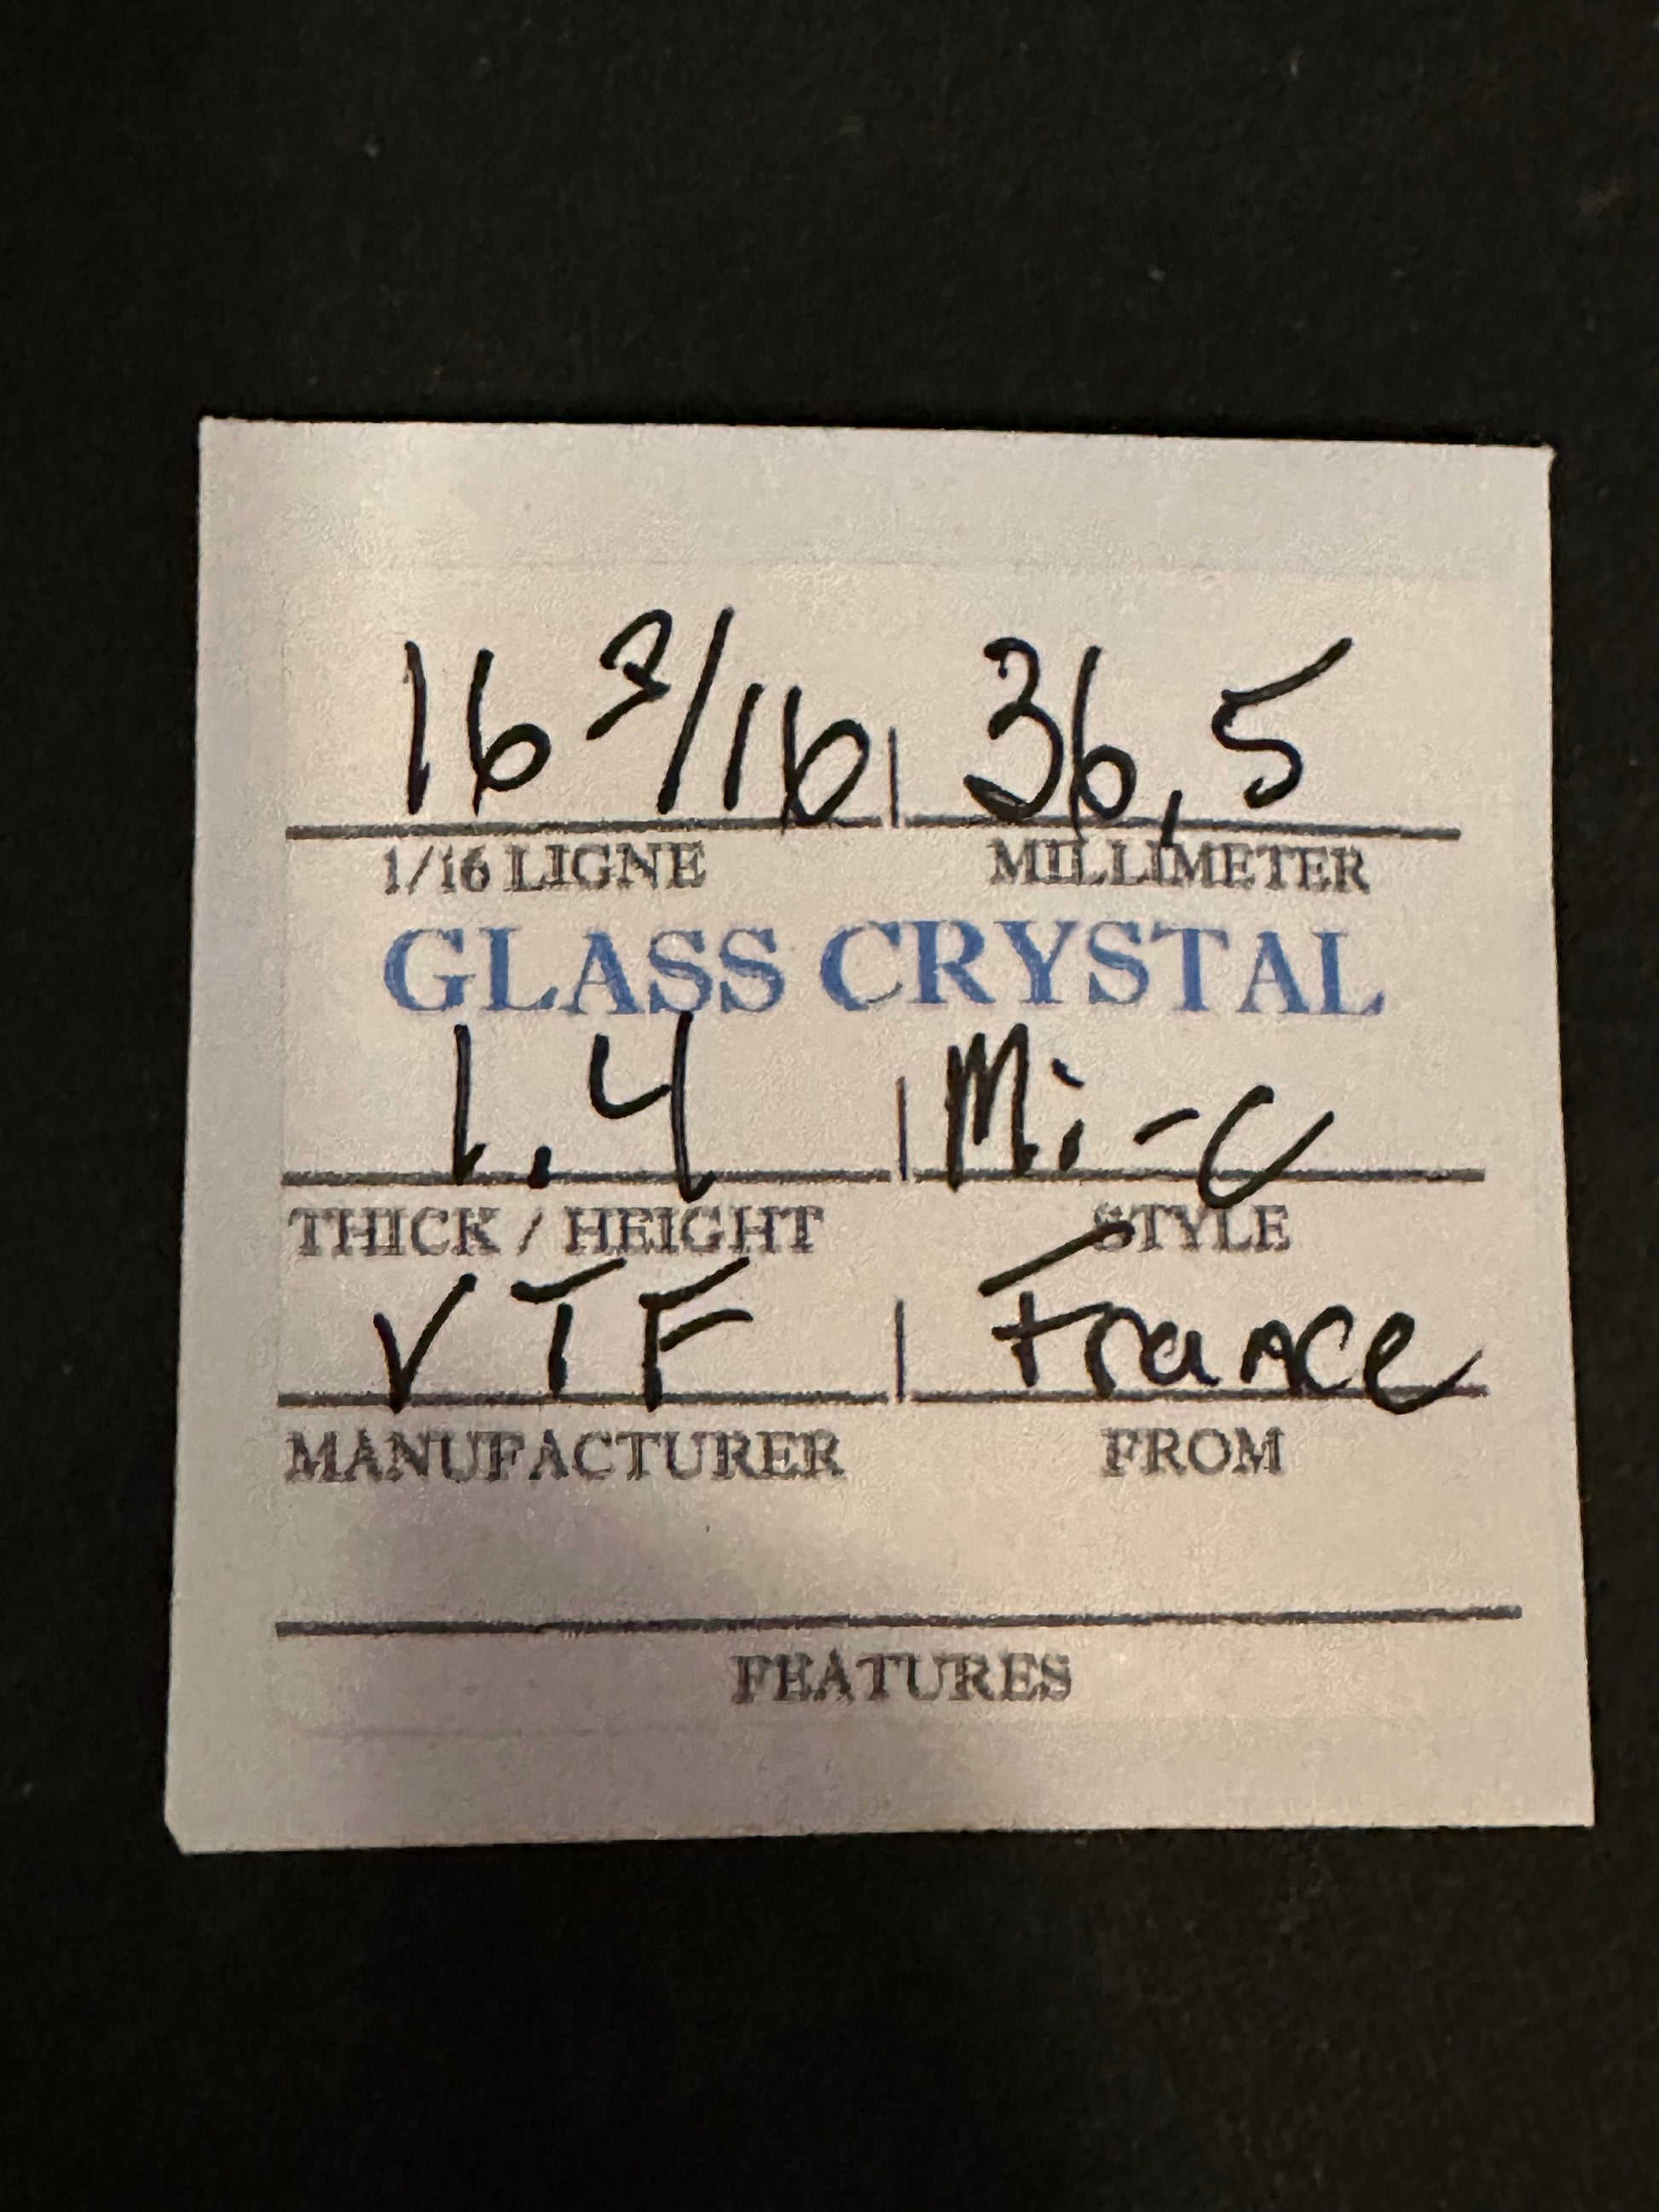 16 3/16 | 36,5
1/16 LIGNE MILLIMETER
GLASS CRYSTAL
1.4 | Mi-C
THICK / HEIGHT STYLE
VTF | France
MANUFACTURER FROM
FEATURES